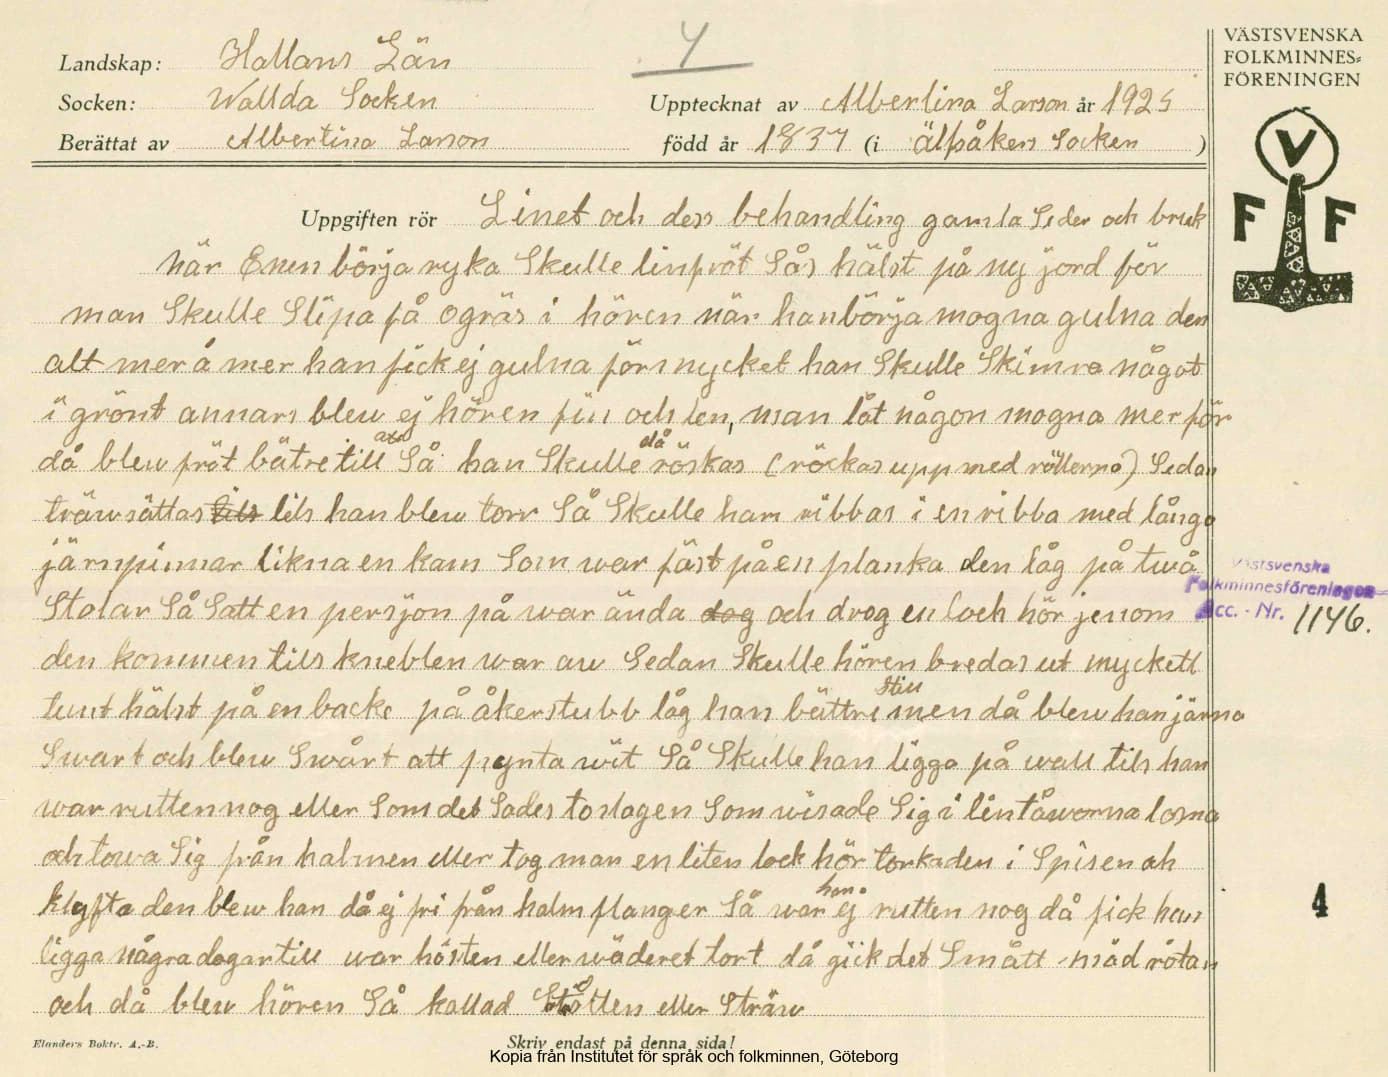 4
VÄSTSVENSKA
FOLKMINNES=
FÖRENINGEN
V
F F
Landskap: Hallans Län
Socken: Wallda Socken
Upptecknat av Albertina Larson år 1925
Berättat av Albertina Larson
född år 1837 (i Älfsåkers Socken )
Uppgiften rör Linet och dess behandling gamla Seder och bruk
när Enen börja ryka Skulle linfröt Sås hälst på ny jord för
man Skulle Slipa få ogräs i hören när han börja mogna gulna den
alt mer å mer han fick ej gulna förs mycket han Skulle Skimra något
i grönt annars blew ej hören fin och len, man låt någon mogna mer för
då blew fröt bätre till axe Så han Skulle då röskas (röckas upp med rötterna) Sedan
träwsättas tils tils han blew torr Så Skulle han ribbas i en ribba med långa
järnpinnar likna en kam Som war fäst på en planka den låg på twå
Stolar Så Satt en persjon på war ända dog och drog en lock hör jenom
den kammen tils kneblen war aw Sedan Skulle hören bredas ut myckett
tunt hälst på en backe på åkerstubb låg han bättre still men då blew han järna
Swart och blew Swårt att pynta wit Så Skulle han ligga på wall tils han
war rutten nog eller Som det Sades toslagen Som wisade Sig i lintåworna losna
och towa Sig från halmen eller tog man en liten lock hör torkaden i Spisen ok
klyfta den blew han då ej fri från halm flanger Så war han ej rutten nog då fick han
ligga några dagar till war hösten eller wäderet tort då gick det Smått mäd rötan
och då blew hören Så kallad Stötten eller Sträw
Västsvenska
Folkminnesföreningen
Acc. - Nr. 1146.
4
Elanders Boktr. A.-B.
Skriv endast på denna sida!
Kopia från Institutet för språk och folkminnen, Göteborg